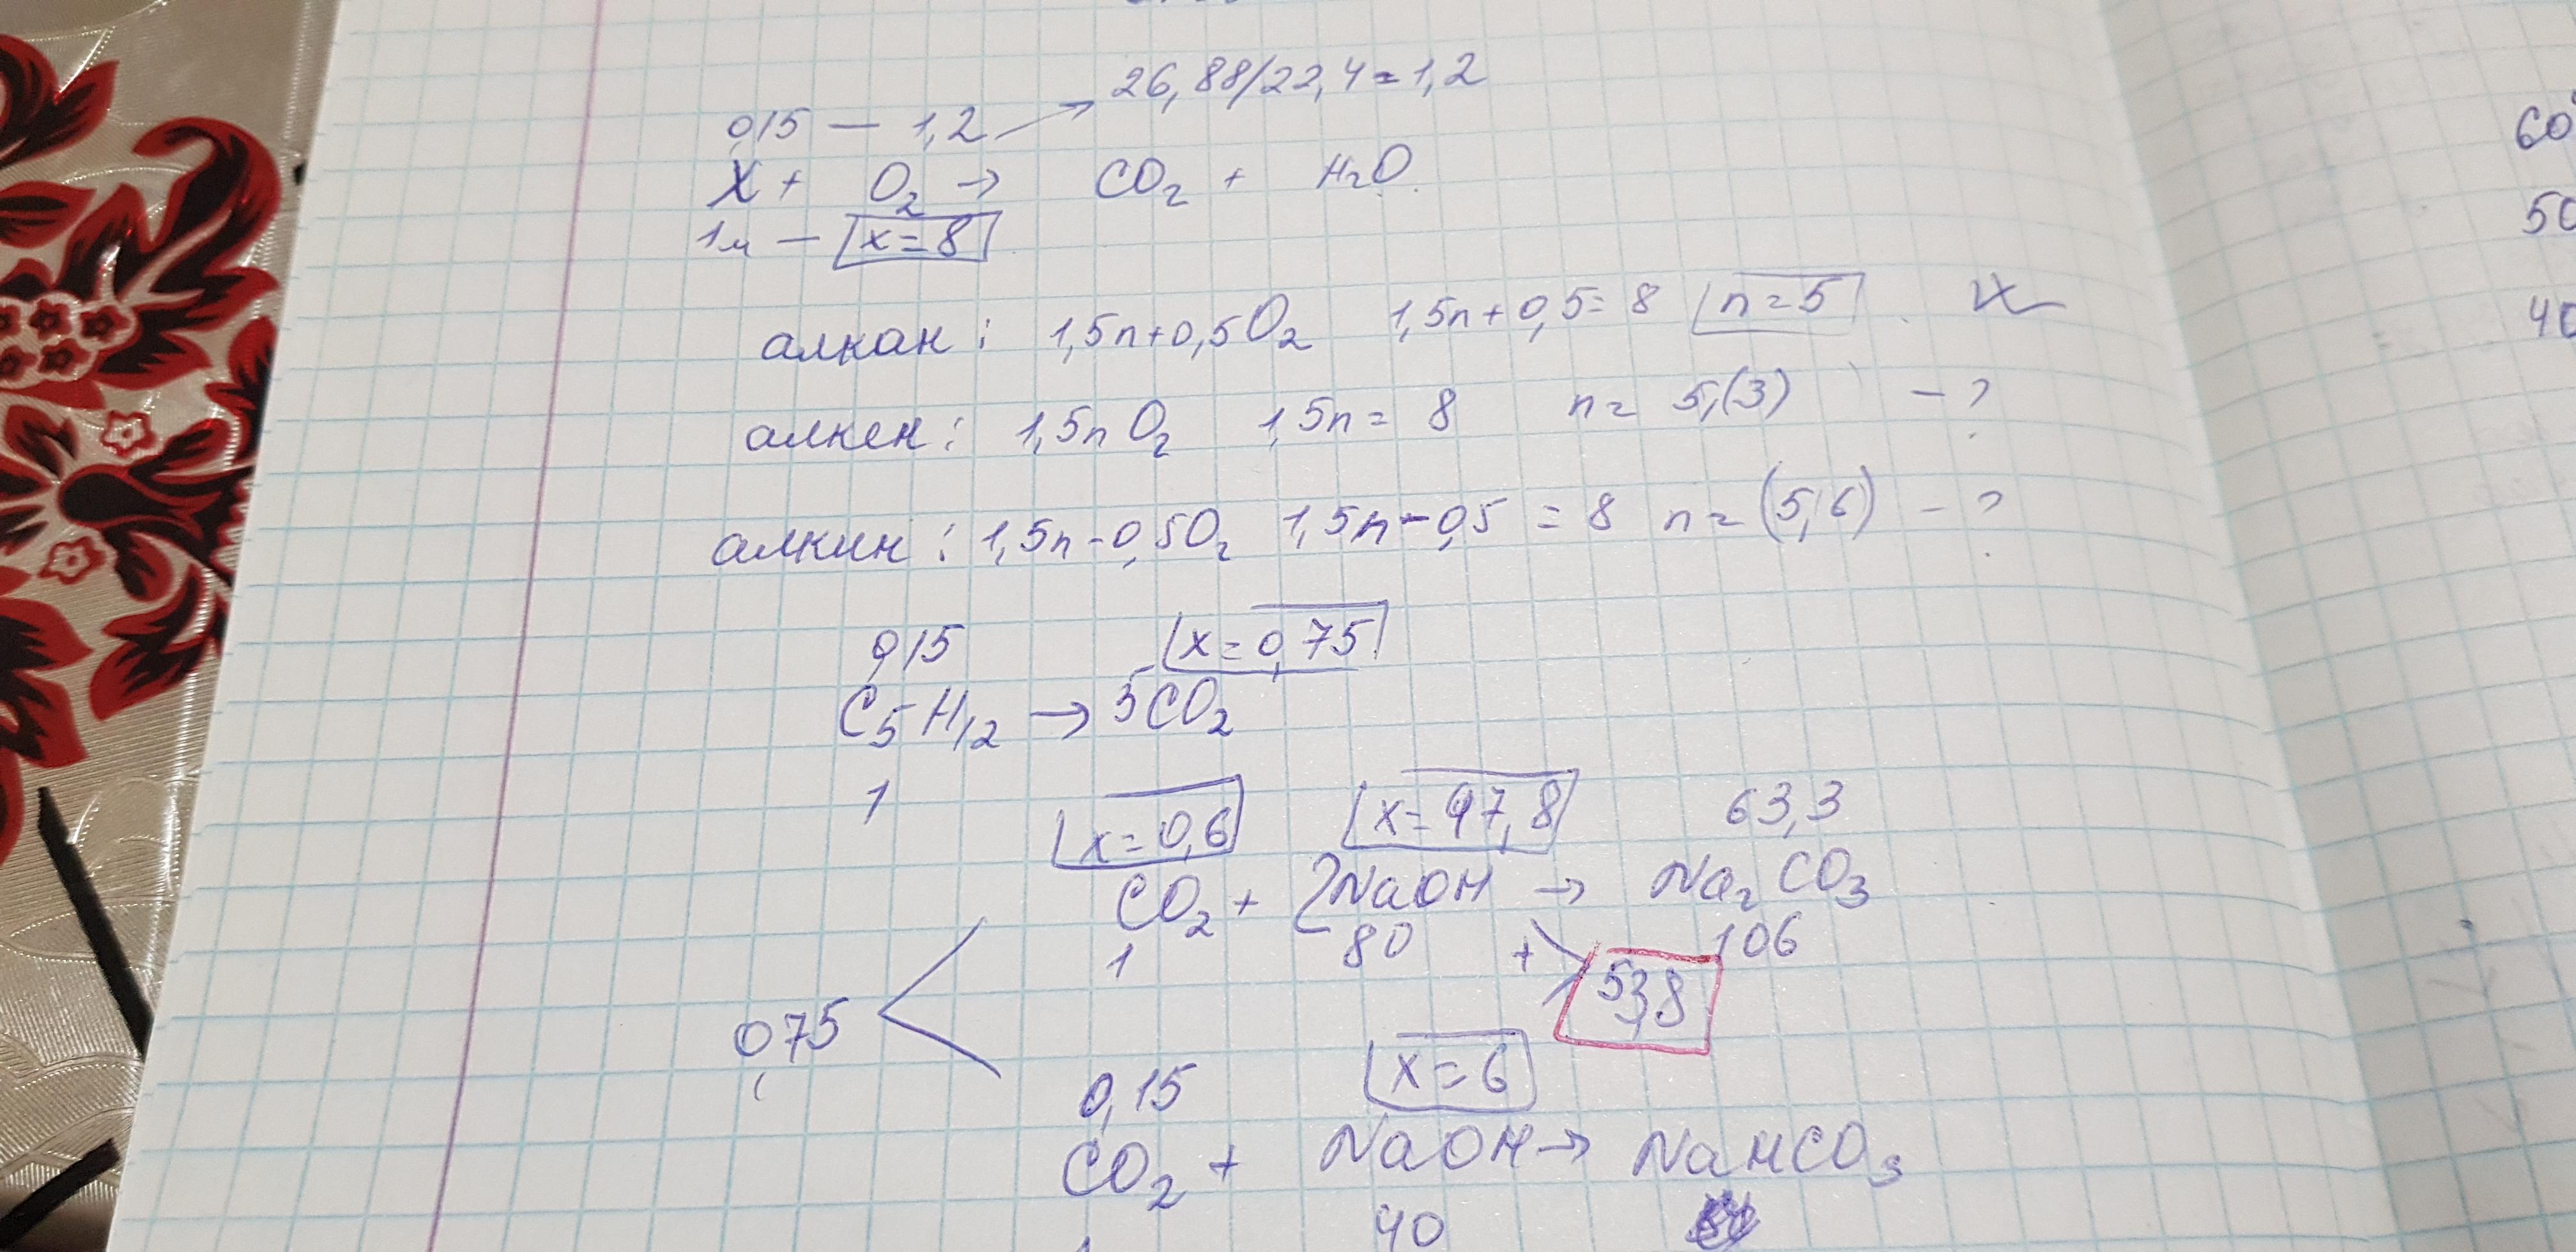 26,88/22,4=1,2
0,15 — 1,2
X + O₂ → CO₂ + H₂O
1м — x=8
алкан: 1,5n+0,5O₂ 1,5n+0,5=8 n=5
алкен: 1,5n O₂ 1,5n=8 n=5,(3) – ?
алкин: 1,5n-0,5O₂ 1,5n-0,5=8 n=(5,6) – ?
0,15 x=0,75
C₅H₁₂ → 5CO₂
1
x=0,6 x=47,8 63,3
CO₂ + 2NaOH → Na₂CO₃
1 80 + 106
53,8
0,75
0,15 x=6
CO₂ + NaOH → NaHCO₃
40
60
50
40